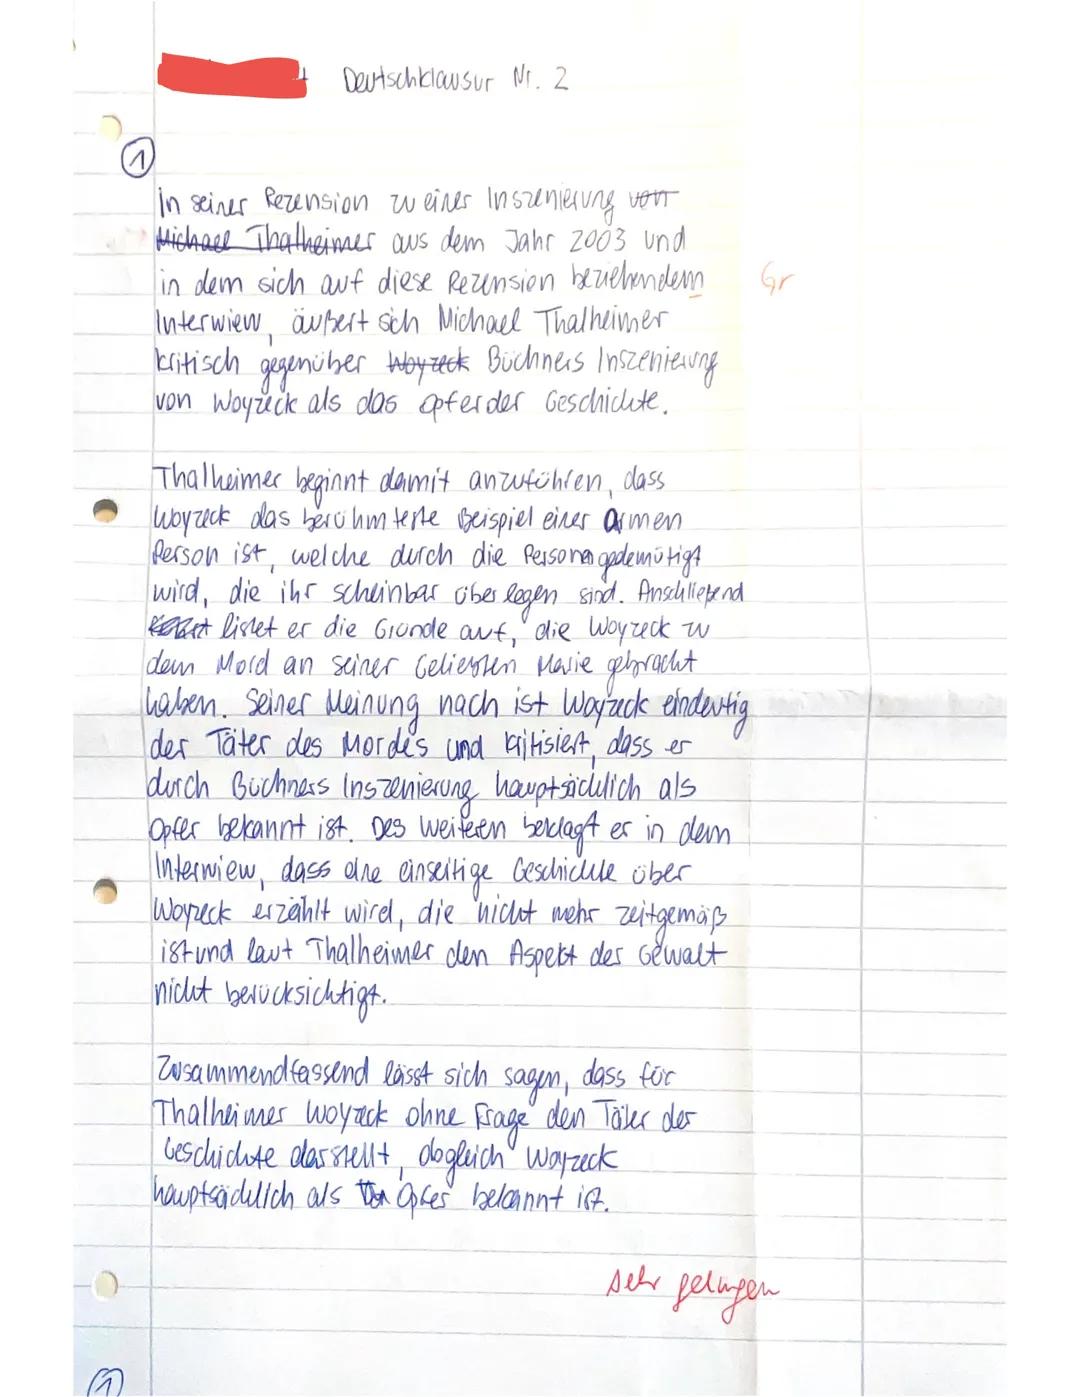 Deutschklausur Nr. 2
1
In seiner Rezension zu einer Inszenierung von
Michael Thalheimer aus dem Jahr 2003 und
in dem sich auf diese Rezension beziehendem
Gr
Interwiew, äußert sich Michael Thalheimer
kritisch gegenüber Woyzeck Büchners Inszenierung
von Woyzeck als das Opfer der Geschichte.
Thalheimer beginnt damit anzuführen, dass
Woyzeck das berühmteste Beispiel einer armen
Person ist, welche durch die Personen gedemütigt
wird, die ihr scheinbar überlegen sind. Anschließend
listet er die Gründe auf, die Woyzeck zu
dem Mord an seiner Geliebten Marie gebracht
haben. Seiner Meinung nach ist Woyzeck eindeutig
der Täter des Mordes und kritisiert, dass er
durch Büchners Inszenierung hauptsächlich als
Opfer bekannt ist. Des Weiteren beklagt er in dem
Interwiew, dass eine einseitige Geschichte über
Woyzeck erzählt wird, die nicht mehr zeitgemäß
ist und laut Thalheimer den Aspekt der Gewalt
nicht berücksichtigt.
Zusammendfassend lässt sich sagen, dass für
Thalheimer Woyzeck ohne Frage den Täter der
Geschichte darstellt, obgleich Woyzeck
hauptsächlich als Opfer bekannt ist.
sehr gelungen
1